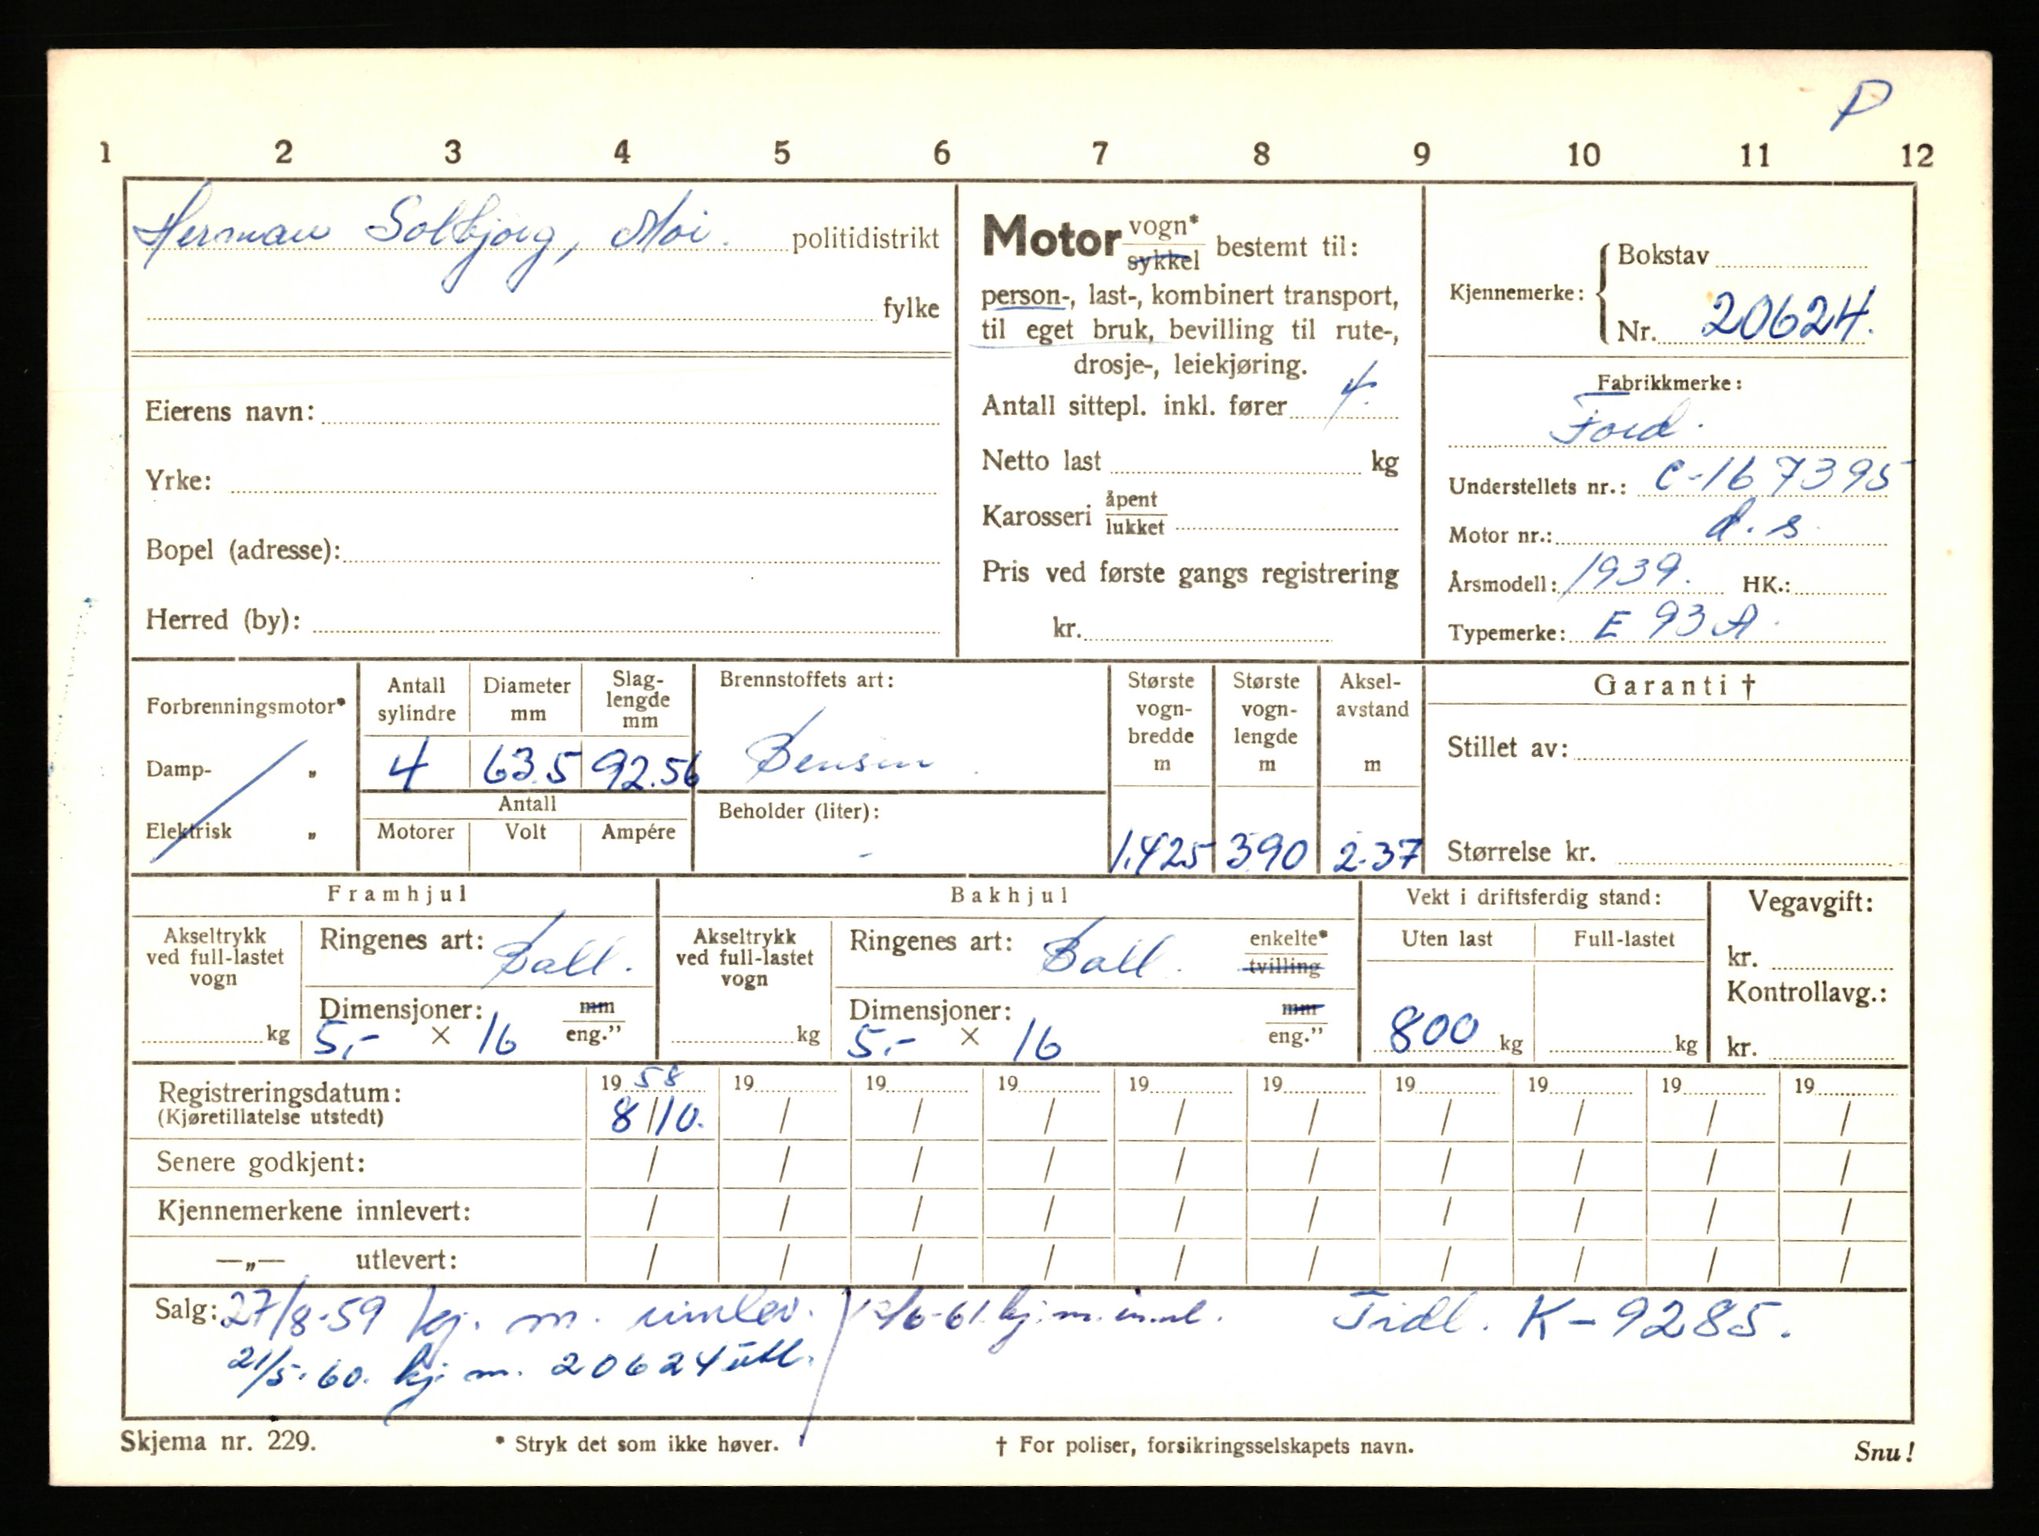 P
1 2 3 4 5 6 7 8 9 10 11 12
Herman Solbjørg, Moi. politidistrikt
fylke
Eierens navn:
Yrke:
Bopel (adresse):
Herred (by):
Motor vogn* sykkel bestemt til:
person-, last-, kombinert transport,
til eget bruk, bevilling til rute-,
drosje-, leiekjøring.
Antall sittepl. inkl. fører 4.
Netto last kg
Karosseri åpent lukket
Pris ved første gangs registrering
kr.
Kjennemerke: Bokstav
Nr. 20624.
Fabrikkmerke:
Ford.
Understellets nr.: C-167395
Motor nr.: d.s.
Årsmodell: 1939. HK.:
Typemerke: E 93 A.
Forbrenningsmotor*
Damp- „
Elektrisk „
Antall sylindre
Diameter mm
Slag-lengde mm
4 63.5 92.56
Antall
Motorer Volt Ampére
Brennstoffets art:
Bensin
Beholder (liter):
-
Største vogn-bredde m
Største vogn-lengde m
Aksel-avstand m
1.425 390 2.37
Garanti †
Stillet av:
Størrelse kr.
Framhjul
Akseltrykk ved full-lastet vogn
kg
Ringenes art: Ball.
Dimensjoner: mm eng.”
5,- × 16
Bakhjul
Akseltrykk ved full-lastet vogn
kg
Ringenes art: Ball. enkelte* tvilling
Dimensjoner: mm eng.”
5,- × 16
Vekt i driftsferdig stand:
Uten last Full-lastet
800 kg kg
Vegavgift:
kr.
Kontrollavg.:
kr.
Registreringsdatum: 19 58 19 19 19 19 19 19 19 19 19
(Kjøretillatelse utstedt) 8/10. / / / / / / / / /
Senere godkjent: / / / / / / / / / /
Kjennemerkene innlevert: / / / / / / / / / /
—„— utlevert: / / / / / / / / / /
Salg: 27/8-59 kj. m. innlev. /6-61. kj. m. innl. Tidl. K-9285.
21/5-60. kj. m. 20624 utl.
Skjema nr. 229. * Stryk det som ikke høver. † For poliser, forsikringsselskapets navn. Snu!